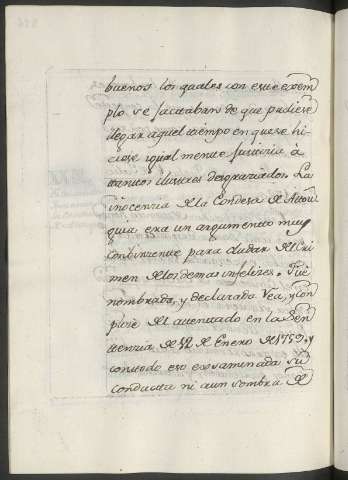 buenos los quales con este exem
plo se jactaban de que pudiese
llegar aquel tiempo en que se hi-
ciese igualmente justicia à
tantos ilustres desgraciados. La
inocencia de la Condesa de Atou
guia era un argumento muy
combincente para dudar del Cri
men de los demas infelizes. Fue
nombrada, y declarada Rea, y Com
plice del atentado en la Sen
tencia de 12 de Enero de 1759, y
con todo eso examinada su
Conducta ni aun sombra de